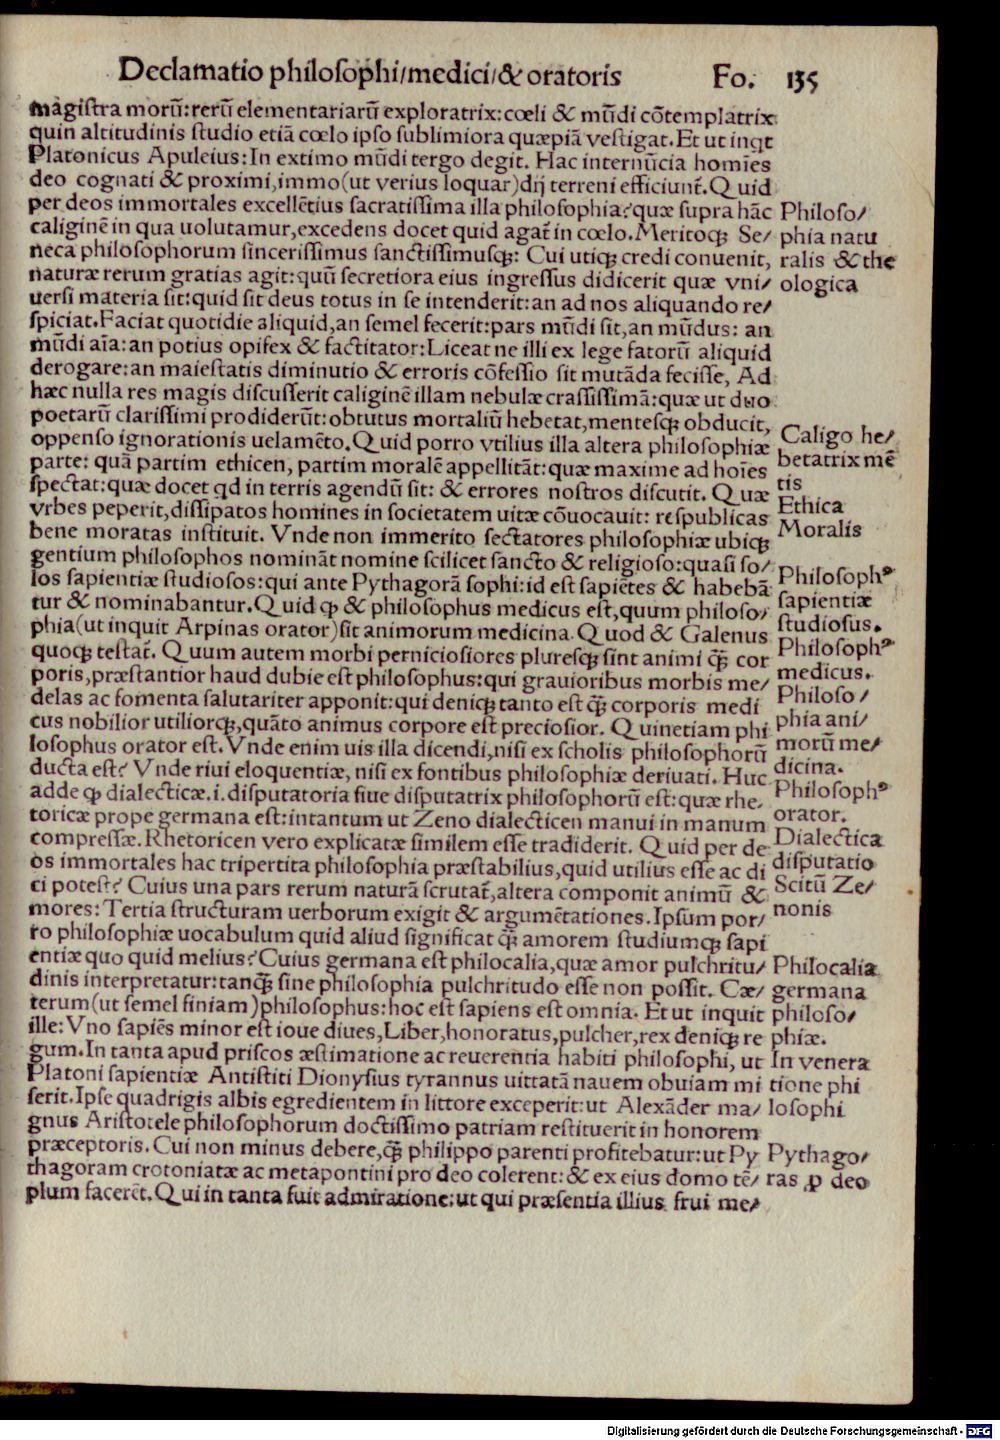 Declamatio philoſophi/medici/& oratoris Fo. 135
magiſtra morū:rerū elementariarū exploratrix:cœli & mūdi cōtemplatrix
quin altitudinis ſtudio etiā cœlo ipſo ſublimiora quæpiā veſtigat.Et ut inqt
Platonicus Apuleius:In extimo mūdi tergo degit. Hac internūcia homīes
deo cognati & proximi,immo(ut verius loquar)dij terreni efficiunt̃.Quid
per deos immortales excellētius ſacratiſſima illa philoſophia?quæ ſupra hāc
caliginē in qua uolutamur,excedens docet quid agat̃ in cœlo.Meritoqꝫ Se/
neca philoſophorum ſinceriſſimus ſanctiſſimuſqꝫ: Cui utiqꝫ credi conuenit,
naturæ rerum gratias agit:quū ſecretiora eius ingreſſus didicerit quæ vni/
uerſi materia ſit:quid ſit deus totus in ſe intenderit:an ad nos aliquando re/
ſpiciat.Faciat quotidie aliquid,an ſemel fecerit:pars mūdi ſit,an mūdus: an
mūdi aīa:an potius opifex & factitator:Liceat ne illi ex lege fatorū aliquid
derogare:an maieſtatis diminutio & erroris cōfeſſio ſit mutāda feciſſe, Ad
hæc nulla res magis diſcuſſerit caliginē illam nebulæ craſſiſſimā:quæ ut duo
poetarū clariſſimi prodiderūt:obtutus mortaliū hebetat,menteſqꝫ obducit,
oppenſo ignorationis uelamēto.Quid porro vtilius illa altera philoſophiæ
parte: quā partim ethicen, partim moralē appellitāt:quæ maxime ad hoīes
ſpectat:quæ docet qd in terris agendū ſit: & errores noſtros diſcutit. Quæ
vrbes peperit,diſſipatos homines in ſocietatem uitæ cōuocauit: reſpublicas
bene moratas inſtituit. Vnde non immerito ſectatores philoſophiæ ubiqꝫ
gentium philoſophos nominãt nomine ſcilicet ſancto & religioſo:quaſi ſo/
los ſapientiæ ſtudioſos:qui ante Pythagorā ſophi:id eſt ſapiētes & habebā
tur & nominabantur.Quid ꝙ & philoſophus medicus eſt,quum philoſo/
phia(ut inquit Arpinas orator)ſit animorum medicina.Quod & Galenus
quoqꝫ teſtat̃. Quum autem morbi pernicioſiores plureſqꝫ ſint animi q̃ꝫ cor
poris,præſtantior haud dubie eſt philoſophus:qui grauioribus morbis me/
delas ac fomenta ſalutariter apponit:qui deniqꝫ tanto eſt q̃ꝫ corporis medi
cus nobilior utiliorqꝫ,quāto animus corpore eſt precioſior. Quinetiam phi
loſophus orator eſt.Vnde enim uis illa dicendi,niſi ex ſcholis philoſophorū
ducta eſt? Vnde riui eloquentiæ, niſi ex fontibus philoſophiæ deriuati. Huc
adde ꝙ dialecticæ.i.diſputatoria ſiue diſputatrix philoſophorū eſt:quæ rhe.
toricæ prope germana eſt:intantum ut Zeno dialecticen manui in manum
compreſſæ.Rhetoricen vero explicatæ ſimilem eſſe tradiderit. Quid per de
os immortales hac tripertita philoſophia præſtabilius,quid utilius eſſe ac di
ci poteſt? Cuius una pars rerum naturā ſcrutat̃,altera componit animū &
mores:Tertia ſtructuram uerborum exigit & argumētationes.Ipſum por/
ro philoſophiæ uocabulum quid aliud ſignificat q̃ꝫ amorem ſtudiumqꝫ ſapi
entiæ quo quid melius?Cuius germana eſt philocalia,quæ amor pulchritu/
dinis interpretatur:tanq̃ꝫ ſine philoſophia pulchritudo eſſe non poſſit. Cæ/
terum(ut ſemel finiam)philoſophus:hoc eſt ſapiens eſt omnia. Et ut inquit
ille:Vno ſapiēs minor eſt ioue diues,Liber,honoratus,pulcher,rex deniqꝫ re
gum.In tanta apud priſcos æſtimatione ac reuerentia habiti philoſophi, ut
Platoni ſapientiæ Antiſtiti Dionyſius tyrannus uittatā nauem obuiam mi
ſerit.Ipſe quadrigis albis egredientem in littore exceperit:ut Alexāder ma/
gnus Ariſtotele philoſophorum doctiſſimo patriam reſtituerit in honorem
præceptoris. Cui non minus debere,q̃ꝫ philippo parenti profitebatur:ut Py
thagoram crotoniatæ ac metapontini pro deo colerent:& ex eius domo tē/
plum facerēt.Qui in tanta fuit admiratione:ut qui præſentia illius frui me/
Philoſo/
phia natu
ralis & the
ologica
Caligo he/
betatrix mē
tis
Ethica
Moralis
Philoſophꝰ
ſapientiæ
ſtudioſus.
Philoſophꝰ
medicus.
Philoſo/
phia ani/
morū me/
dicina.
Philoſophꝰ
orator.
Dialectica
diſputatio
Scitū Ze/
nonis
Philocalia
germana
philoſo/
phiæ.
In venera
tione phi
loſophi
Pythago/
ras ꝓ deo
Digitalisierung gefördert durch die Deutsche Forschungsgemeinschaft - DFG